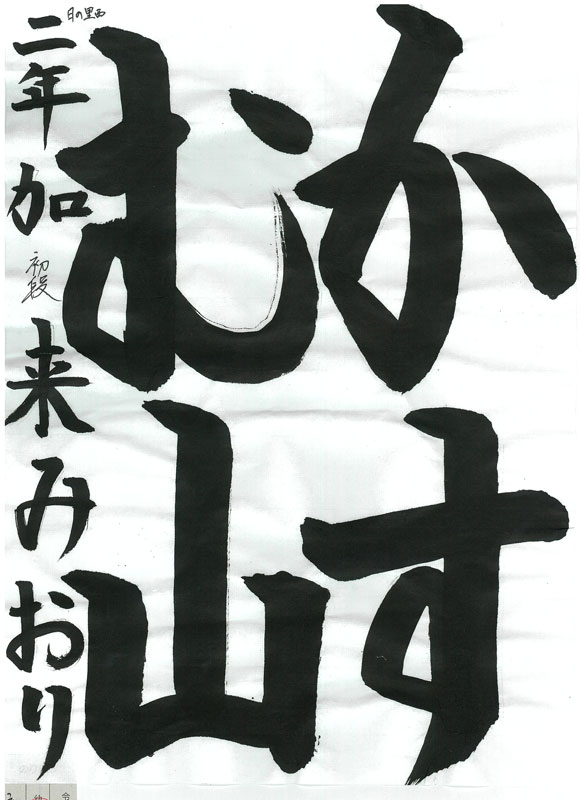 かす
む山
日の里西
二年加来みおり
初段